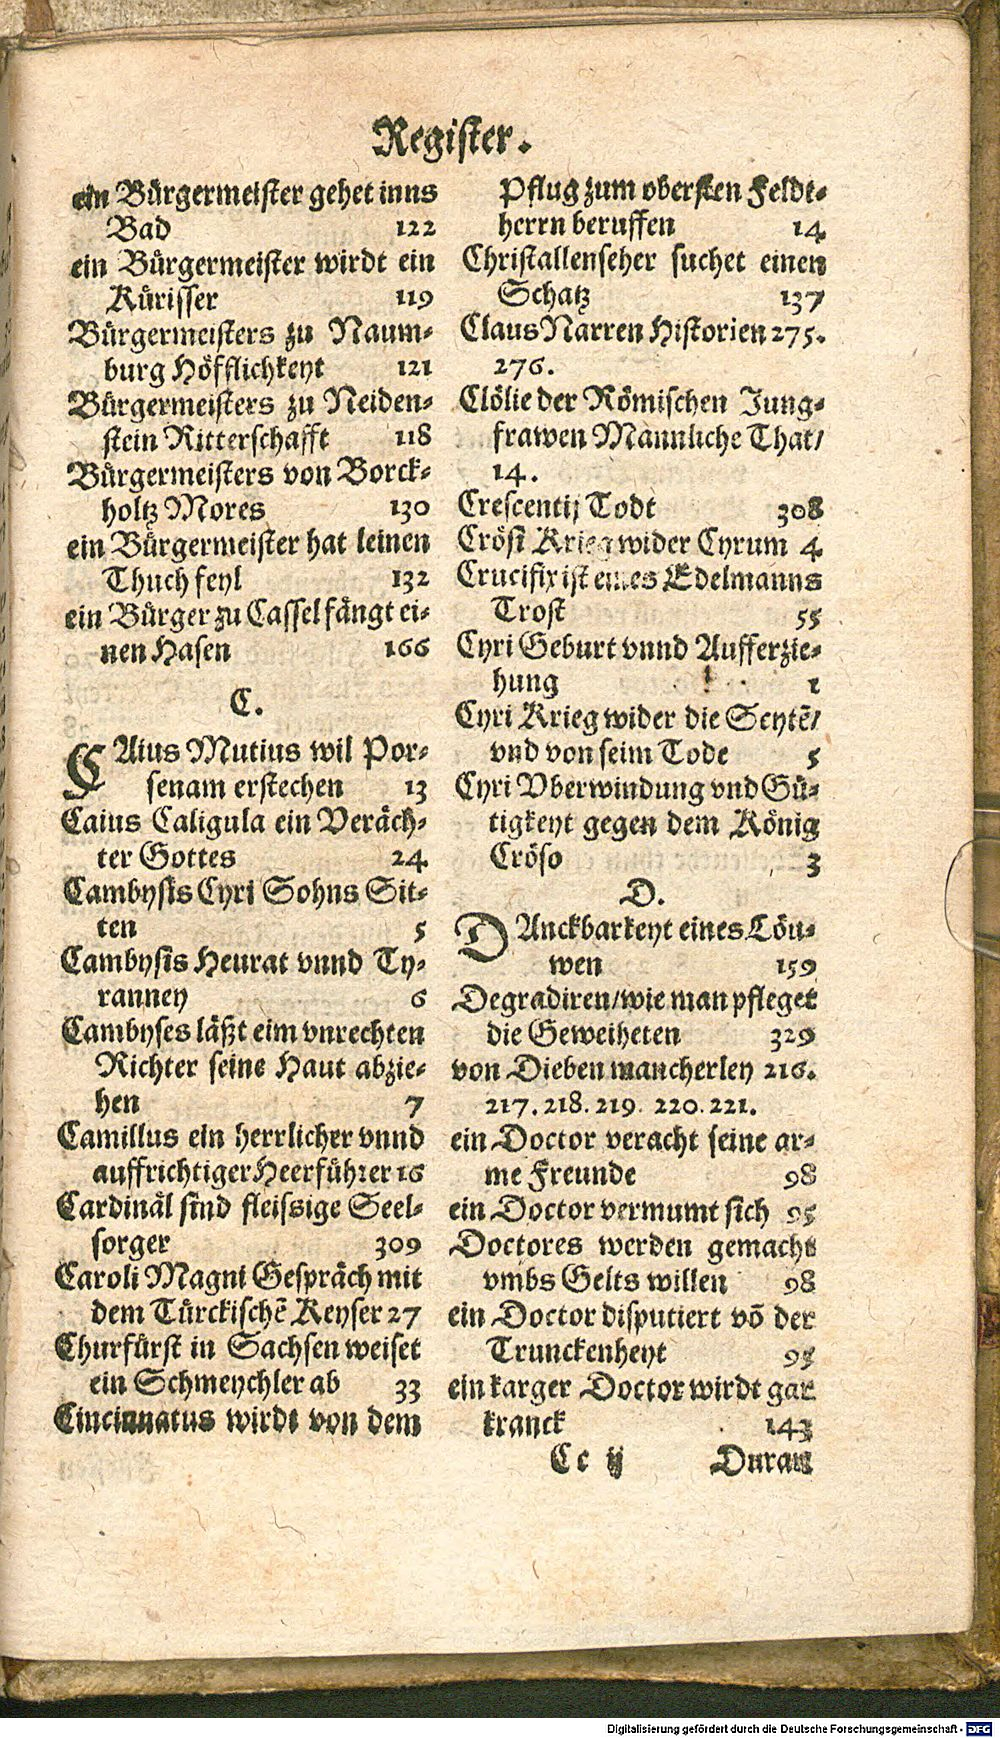 Register.
ein Bürgermeister gehet inns
Bad 122
ein Bürgermeister wirdt ein
Kürisser 119
Bürgermeisters zu Naum-
burg Höfflichkeyt 121
Bürgermeisters zu Neiden-
stein Ritterschafft 118
Bürgermeisters von Borck-
holtz Mores 130
ein Bürgermeister hat leinen
Thuch feyl 132
ein Bürger zu Cassel fängt ei-
nen Hasen 166
C.
CAius Mutius wil Por-
senam erstechen 13
Caius Caligula ein Veräch-
ter Gottes 24
Cambysis Cyri Sohns Sit-
ten 5
Cambysis Heurat vnnd Ty-
ranney 6
Cambyses läßt eim vnrechten
Richter seine Haut abzie-
hen 7
Camillus ein herrlicher vnnd
auffrichtiger Heerführer 16
Cardinäl sind fleissige Seel-
sorger 309
Caroli Magni Gespräch mit
dem Türckischẽ Keyser 27
Churfürst in Sachsen weiset
ein Schmeychler ab 33
Cincinnatus wirdt von dem
Pflug zum obersten Feldt-
herrn beruffen 14
Christallenseher suchet einen
Schatz 137
Claus Narren Historien 275.
276.
Clölie der Römischen Jung-
frawen Mannliche That/
14.
Crescentij Todt 308
Crösi Krieg wider Cyrum 4
Crucifix ist eines Edelmanns
Trost 55
Cyri Geburt vnnd Aufferzie-
hung 1
Cyri Krieg wider die Scytẽ/
vnd von seim Tode 5
Cyri Vberwindung vnd Gü-
tigkeyt gegen dem König
Cröso 3
D.
DAnckbarkeyt eines Löu-
wen 159
Degradiren/wie man pfleget
die Geweiheten 329
von Dieben mancherley 216.
217. 218. 219. 220. 221.
ein Doctor veracht seine ar-
me Freunde 98
ein Doctor vermumt sich 95
Doctores werden gemacht
vmbs Gelts willen 98
ein Doctor disputiert võ der
Trunckenheyt 95
ein karger Doctor wirdt gar
kranck 143
Cc ij Duran
Digitalisierung gefördert durch die Deutsche Forschungsgemeinschaft - DFG